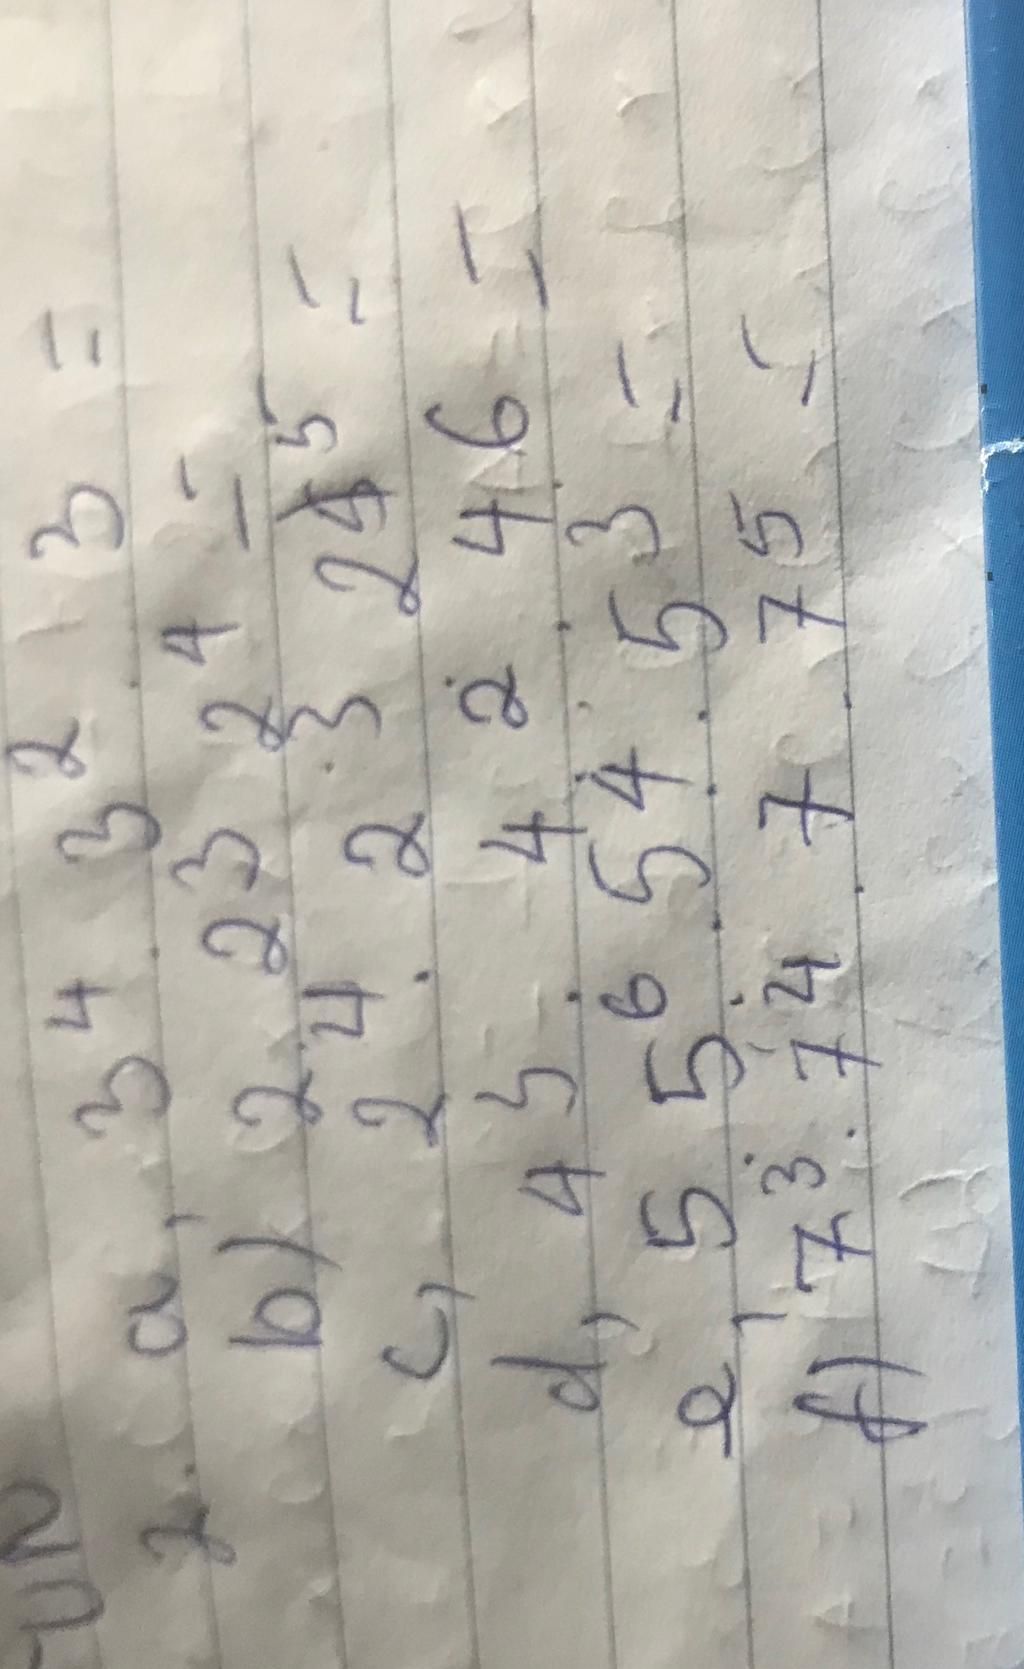 2. a, 3⁴ . 3² . 3 =
b) 2 . 2³ 2⁴ =
c, 2⁴ . 2³ . 2⁵ =
d, 4⁵ . 4² . 4⁶ =
e, 5 . 5⁶ . 5⁴ . 5³ =
f) 7³ . 7⁴ . 7 . 7⁵ =